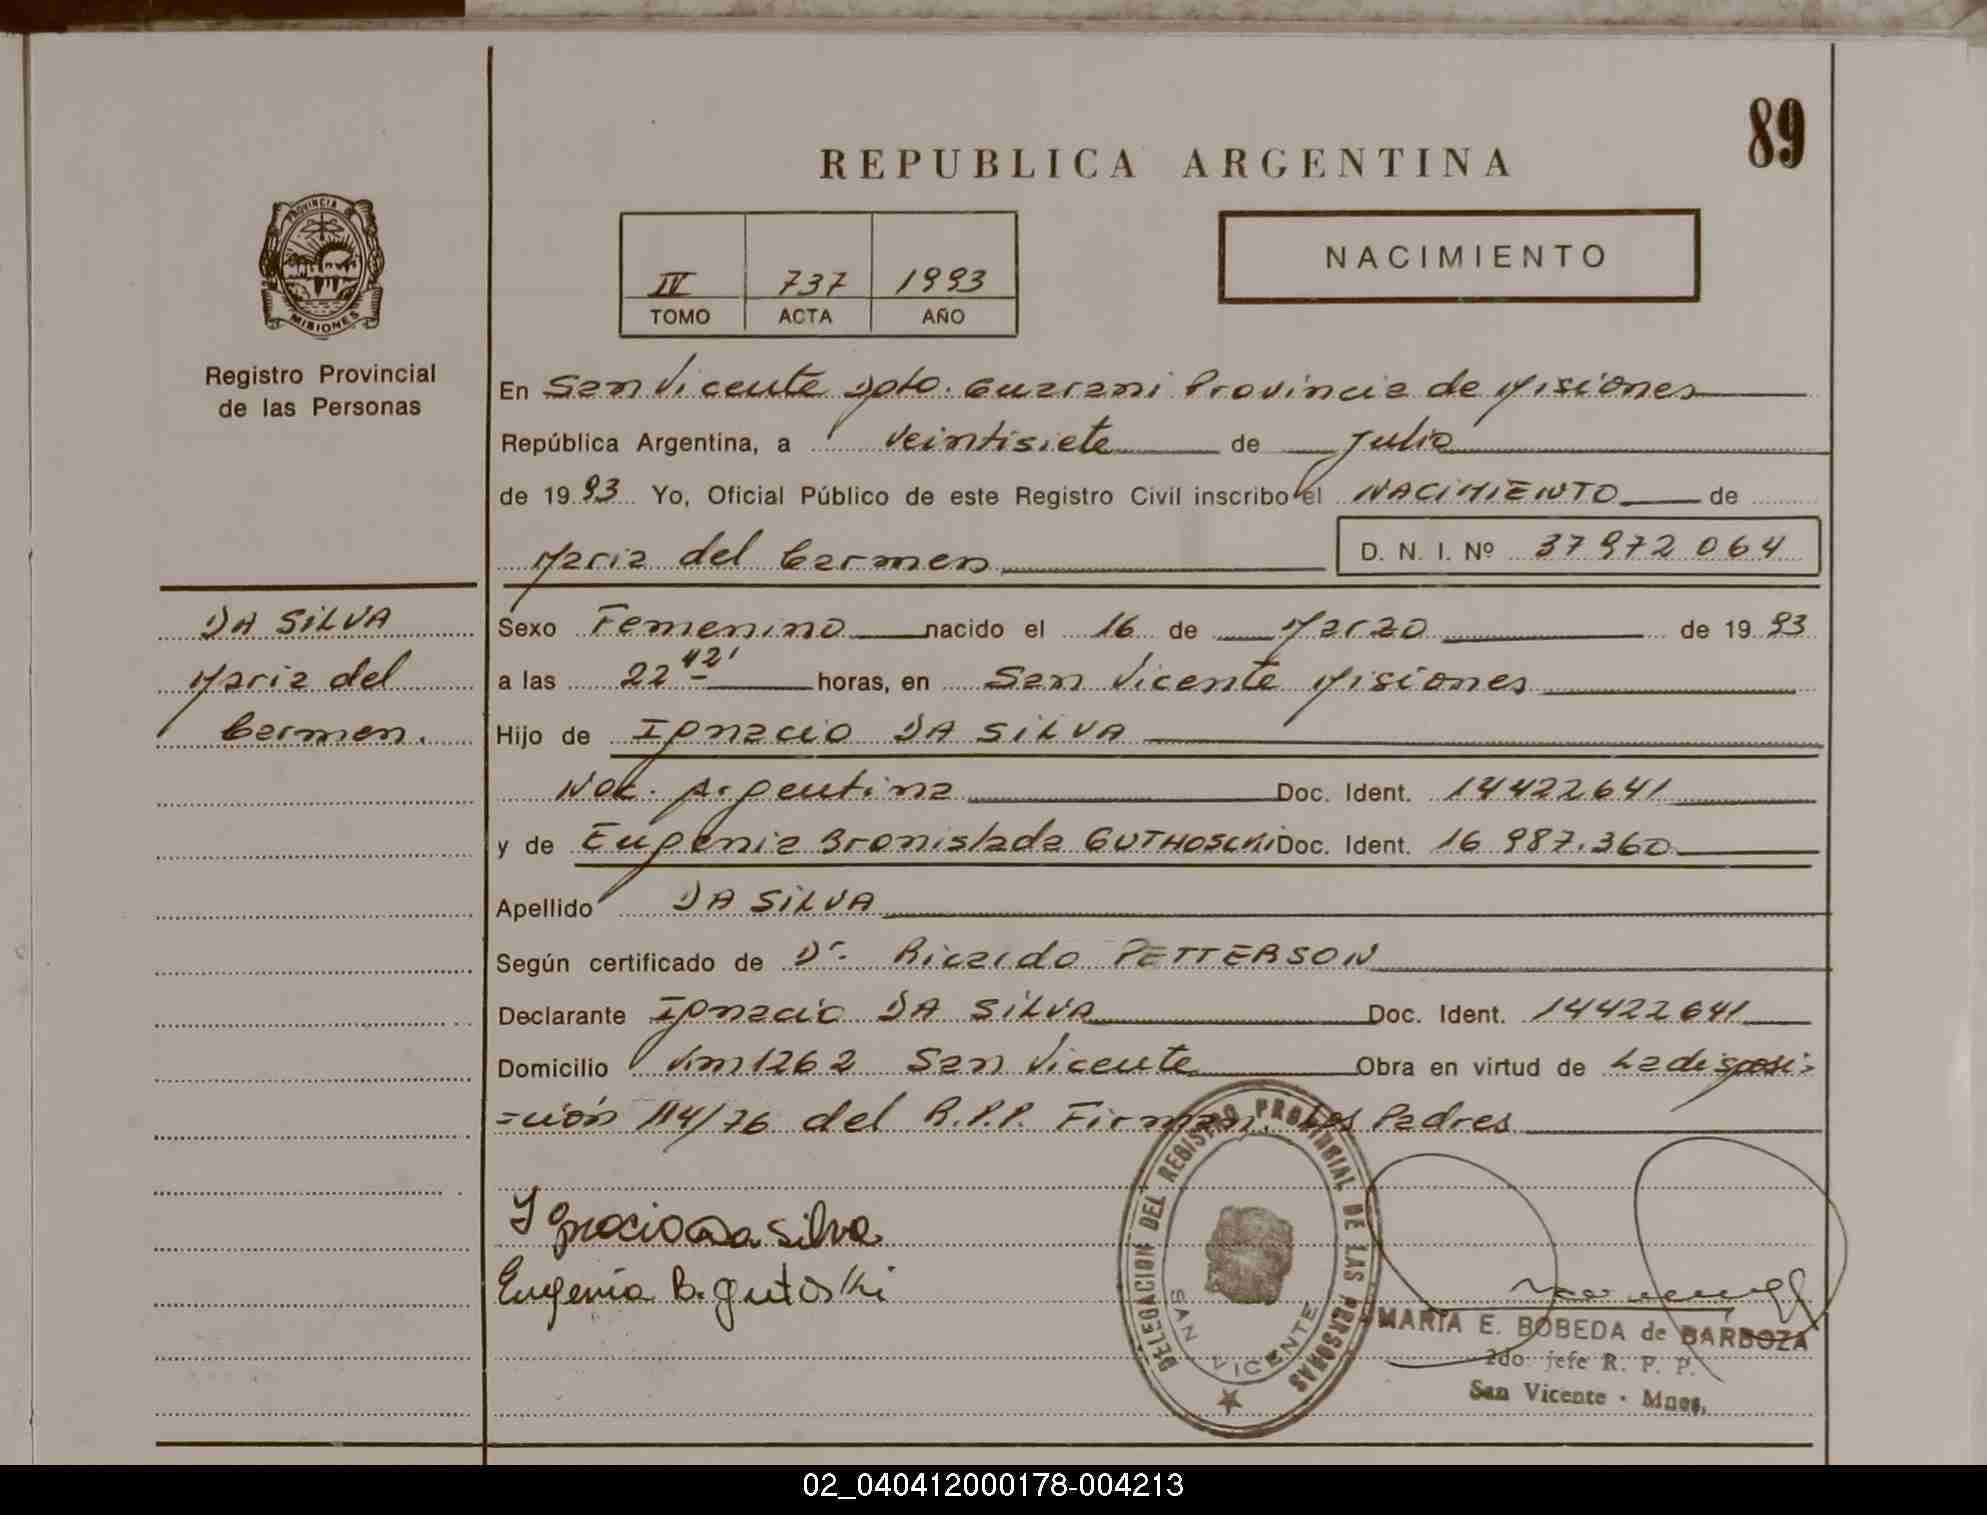 89
REPUBLICA ARGENTINA
PROVINCIA DE
MISIONES
IV 737 1993
TOMO ACTA AÑO
NACIMIENTO
Registro Provincial
de las Personas
En San Vicente Dpto. Guarani Provincia de Misiones
República Argentina, a veintisiete de Julio
de 1993 Yo, Oficial Público de este Registro Civil inscribo el NACIMIENTO de
Maria del Carmen D. N. I. Nº 37 972 064
DA SILVA
Maria del
Carmen.
Sexo Femenino nacido el 16 de Marzo de 1993
a las 22 42' horas, en San Vicente Misiones
Hijo de Ignacio DA SILVA
Nac. Argentina Doc. Ident. 14422641
y de Eugenia Bronislada GUTHOSCKI Doc. Ident. 16 987.360
Apellido DA SILVA
Según certificado de Dr. Ricardo PETTERSON
Declarante Ignacio DA SILVA Doc. Ident. 14422641
Domicilio Km 1262 San Vicente Obra en virtud de La disposi=
=ción 114/76 del R.P.P. Firman. Los Padres
Ignacio Da Silva
Eugenia B. gutoski
DELEGACION DEL REGISTRO PROVINCIAL DE LAS PERSONAS
SAN VICENTE
MARIA E. BOBEDA de BARBOZA
2do. jefe R. P. P.
San Vicente - Mnes,
02_040412000178-004213